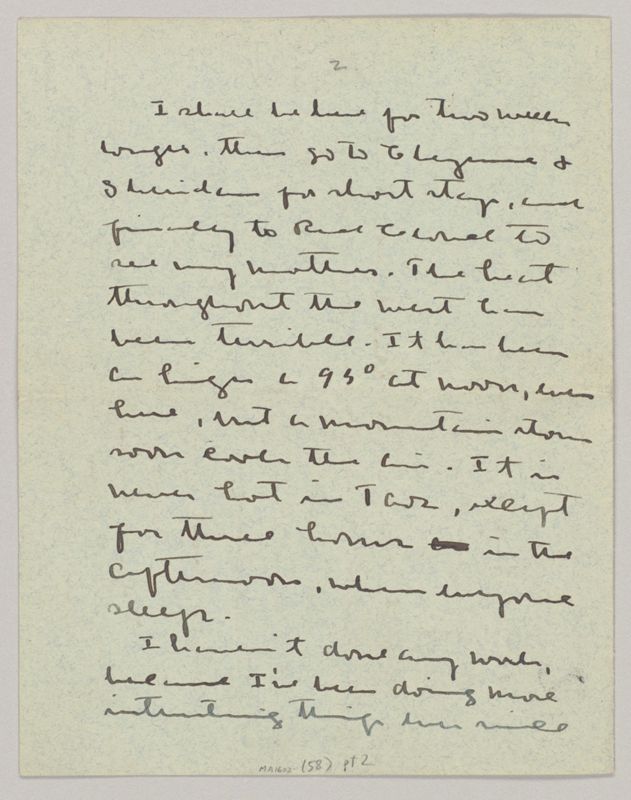 2
I shall be here for two weeks
longer. then go to Cheyenne &
Sheridan for short stay, and
finally to Red Cloud to
see my mother. The heat
throughout the west has
been terrible. It has been
as high as 95° at noon, even
here, but a mountain storm
soon cools the air. It is
never hot in Taos, except
for three hours in the
afternoon, when everyone
sleeps.
I haven't done any work,
because I've been doing more
interesting things ever since
MA1602 (58) pt 2